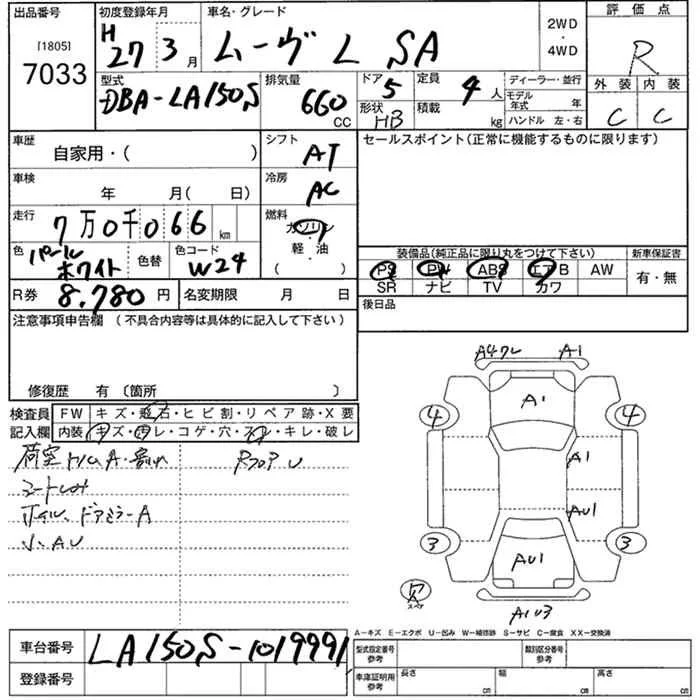 出品番号
[1805]
7033
初度登録年月
H
27 3 月
車名・グレード
ムーヴ L SA
2WD
・
4WD
評価点
R
型式
DBA-LA150S
排気量
660
CC
ドア 5
定員 4 人
形状 HB
積載 kg
ディーラー・並行
モデル年式 年
ハンドル 左・右
外装 内装
C C
車歴
自家用・( )
シフト
AT
セールスポイント(正常に機能するものに限ります)
車検
年 月( 日)
冷房
AC
走行
7万0千066 km
燃料
ガソリン
軽・油
( )
色
パール
ホワイト
色替
色コード
W24
装備品(純正品に限り丸をつけて下さい)
新車保証書
PS PW ABS エアB AW
有・無
SR ナビ TV カワ
R券 8.780 円
名変期限 月 日
後日品
注意事項申告欄 (不具合内容等は具体的に記入して下さい)
修復歴 有 〔箇所 〕
検査員
記入欄
FW キズ・飛石・ヒビ割・リペア跡・X要
内装 キズ・汚レ・コゲ・穴・スレ・キレ・破レ
荷室トリムA・割れ
RフロアU
シートしみ
ホイル、ドアミラーA
小、AU
A4ワレ A1
A1
4 4
A1
AU1
3 3
AU1
スペア
AIU3
A-キズ E-エクボ U-凹み W-補修跡 S-サビ C-腐食 XX-交換済
車台番号
LA150S-1019991
登録番号
型式指定番号
参考
類別区分番号
参考
車庫証明用
参考
長さ cm
幅 cm
高さ cm